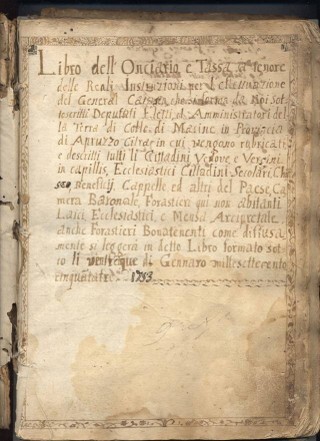 Libro dell'Onciario e Tassa a tenore
delle Reali Istruzioni per l'elattunzione
del General Catasto, che si forma da Noi Sot
toscritti Deputati Eletti, et Amministratori del
la Terra di Colle di Macine in Provincia
di Apruzzo Citra, in cui vengono rubricate
e descritti tutti li Cittadini Vedove e Vergini
in capillis, Ecclesiastici Cittadini Secolari, Chie
se, Beneficij, Cappelle ed altri del Paese, Ca
mera Baronale, Forastieri qui non abitanti
Laici Ecclesiastici, e Mensa Arcipretale
anche Forastieri Bonatenenti come diffusa
mente si leggerà in detto Libro formato sot
to li ventitque di Gennaro millesettecento
cinquantatre 1753